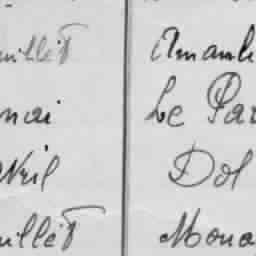 uillet Amanl
nai Le Par
Neil Dol
uillet Mona